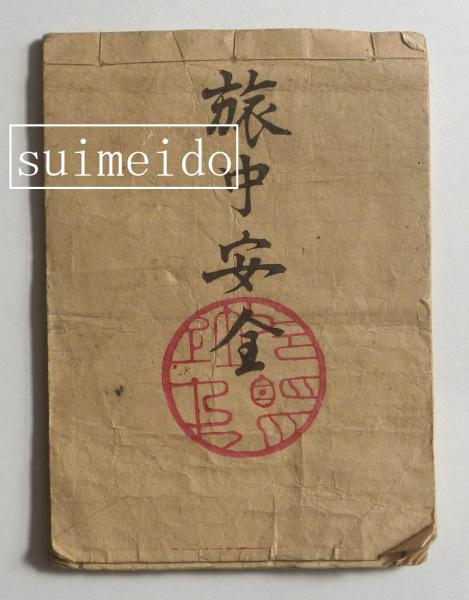 旅中安全
suimeido